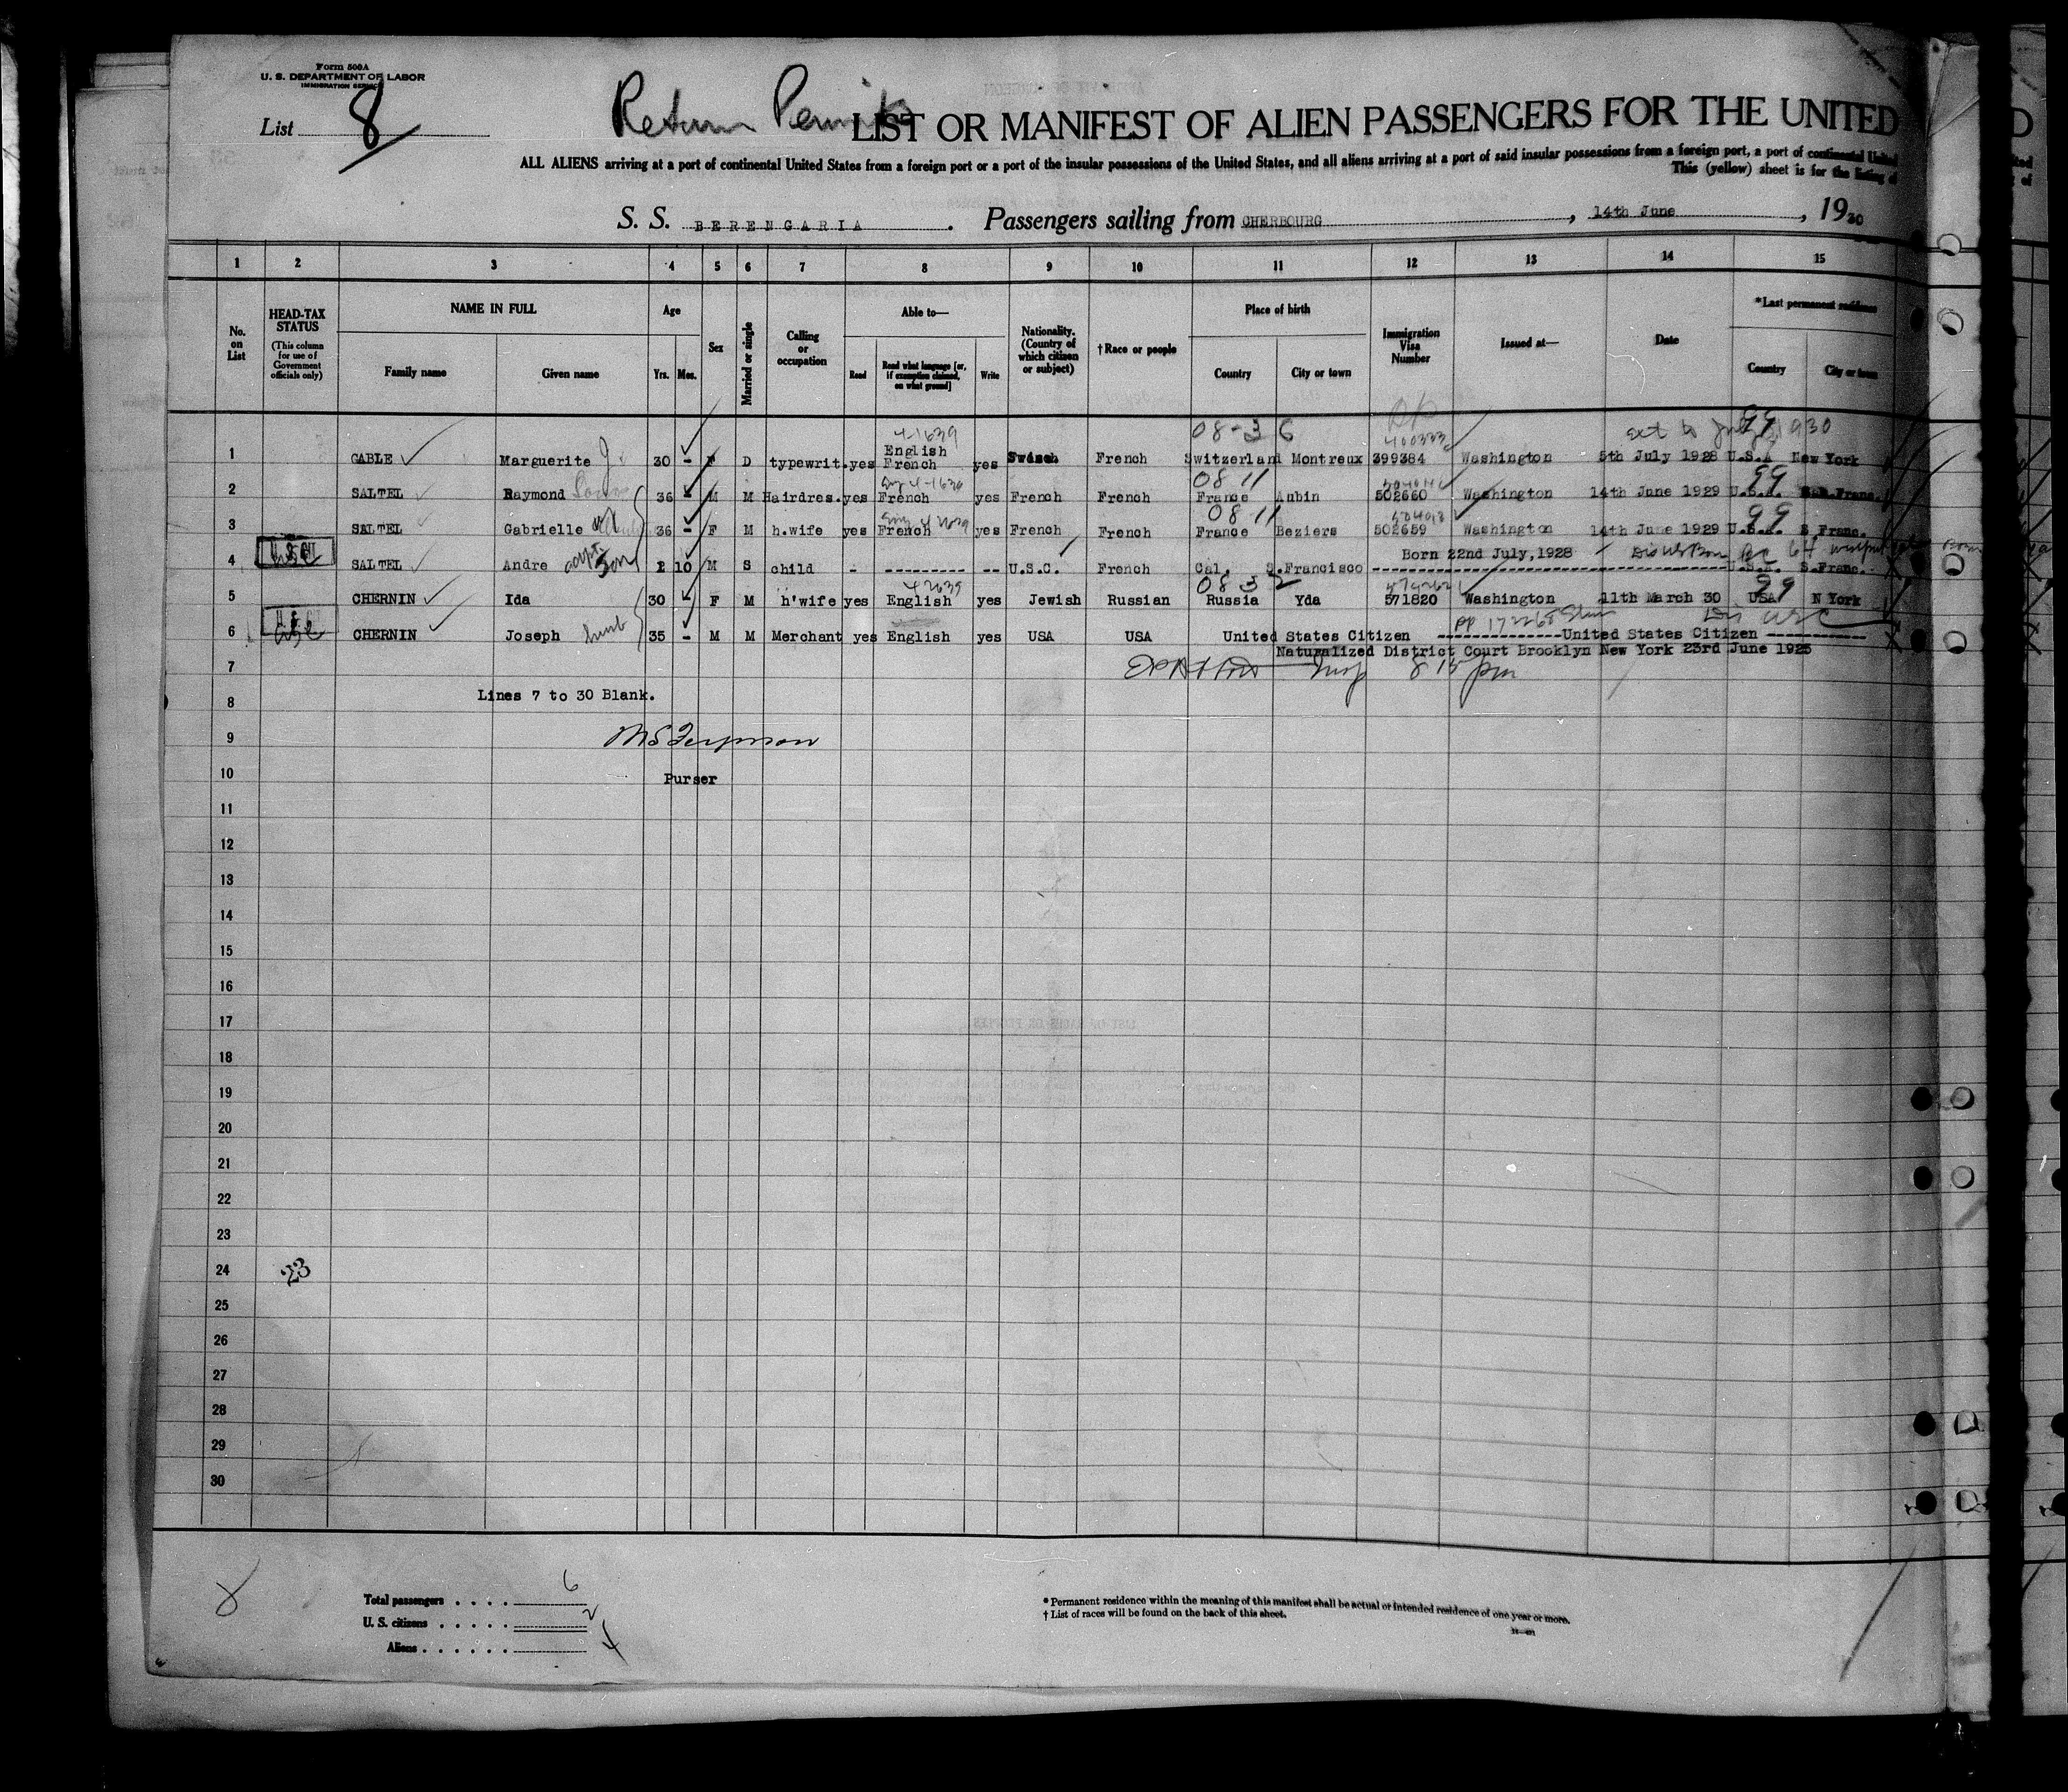 Form 500A
U. S. DEPARTMENT OF LABOR
IMMIGRATION SERVICE
List 8
Return Permits
LIST OR MANIFEST OF ALIEN PASSENGERS FOR THE UNITED
ALL ALIENS arriving at a port of continental United States from a foreign port or a port of the insular possessions of the United States, and all aliens arriving at a port of said insular possessions from a foreign port, a port of continental United
This (yellow) sheet is for the listing of
S. S. BERENGARIA . Passengers sailing from CHERBOURG , 14th June , 1930
1 2 3 4 5 6 7 8 9 10 11 12 13 14 15
No. on List
HEAD-TAX STATUS (This column for use of Government officials only)
NAME IN FULL
Family name Given name
Age
Yrs. Mos.
Sex
Married or single
Calling or occupation
Able to—
Read Read what language [or, if exemption claimed, on what ground] Write
Nationality. (Country of which citizen or subject)
†Race or people
Place of birth
Country City or town
Immigration Visa Number
Issued at—
Date
*Last permanent residence
Country City or town
08-36 99 1930
4-1639 400333
1 GABLE Marguerite J. 30 - F D typewrit. yes English French yes Swissh French Switzerland Montreux 399384 Washington 5th July 1928 U.S.A New York
08 11 99
2 SALTEL Raymond 36 - M M Hairdres. yes French yes French French France Aubin 502660 Washington 14th June 1929 U.S.A. S.Franc.
08 11 99
3 SALTEL Gabrielle 36 - F M h.wife yes French yes French French France Beziers 502659 Washington 14th June 1929 U.S.A. S.Franc.
Born 22nd July,1928
4 SALTEL Andre adopt. son 1 10 M S child - --------- -- U.S.C. French Cal. S.Francisco ---------- U.S.A. S.Franc.
42639 08 32 99
5 CHERNIN Ida 30 - F M h'wife yes English yes Jewish Russian Russia Yda 571820 Washington 11th March 30 USA N York
6 CHERNIN Joseph husb 35 - M M Merchant yes English yes USA USA United States Citizen --------------United States Citizen -----------
Naturalized District Court Brooklyn New York 23rd June 1925
7
8 15 pm
Lines 7 to 30 Blank.
8
9
Purser
10
11
12
13
14
15
16
17
18
19
20
21
22
23
24 23
25
26
27
28
29
30
8
Total passengers . . . . 6
U. S. citizens . . . . . 2
Aliens . . . . . . 4
* Permanent residence within the meaning of this manifest shall be actual or intended residence of one year or more.
† List of races will be found on the back of this sheet.